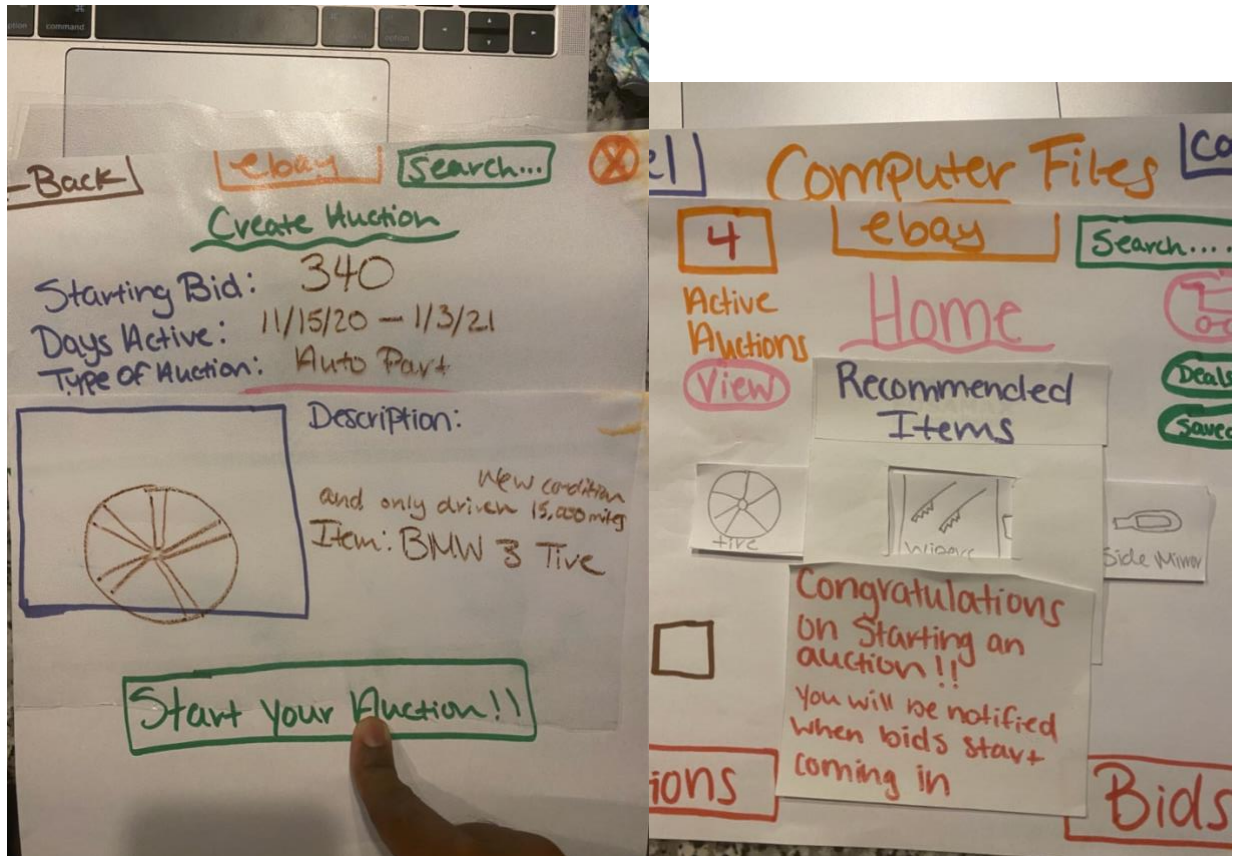 command
option
Back
ebay
Search...
X
Create Auction
Starting Bid: 340
Days Active: 11/15/20 - 1/3/21
Type of Auction: Auto Part
Description:
New condition
and only driven 15,000 miles
Item: BMW 3 Tire
Start your Auction!!
el
Computer Files
Co
4
ebay
Search....
Active
Auctions
View
Home
Deals
Saved
Recommended
Items
tire
Wipers
Side Mirror
Congratulations
on Starting an
auction!!
You will be notified
when bids start
coming in
ions
Bids